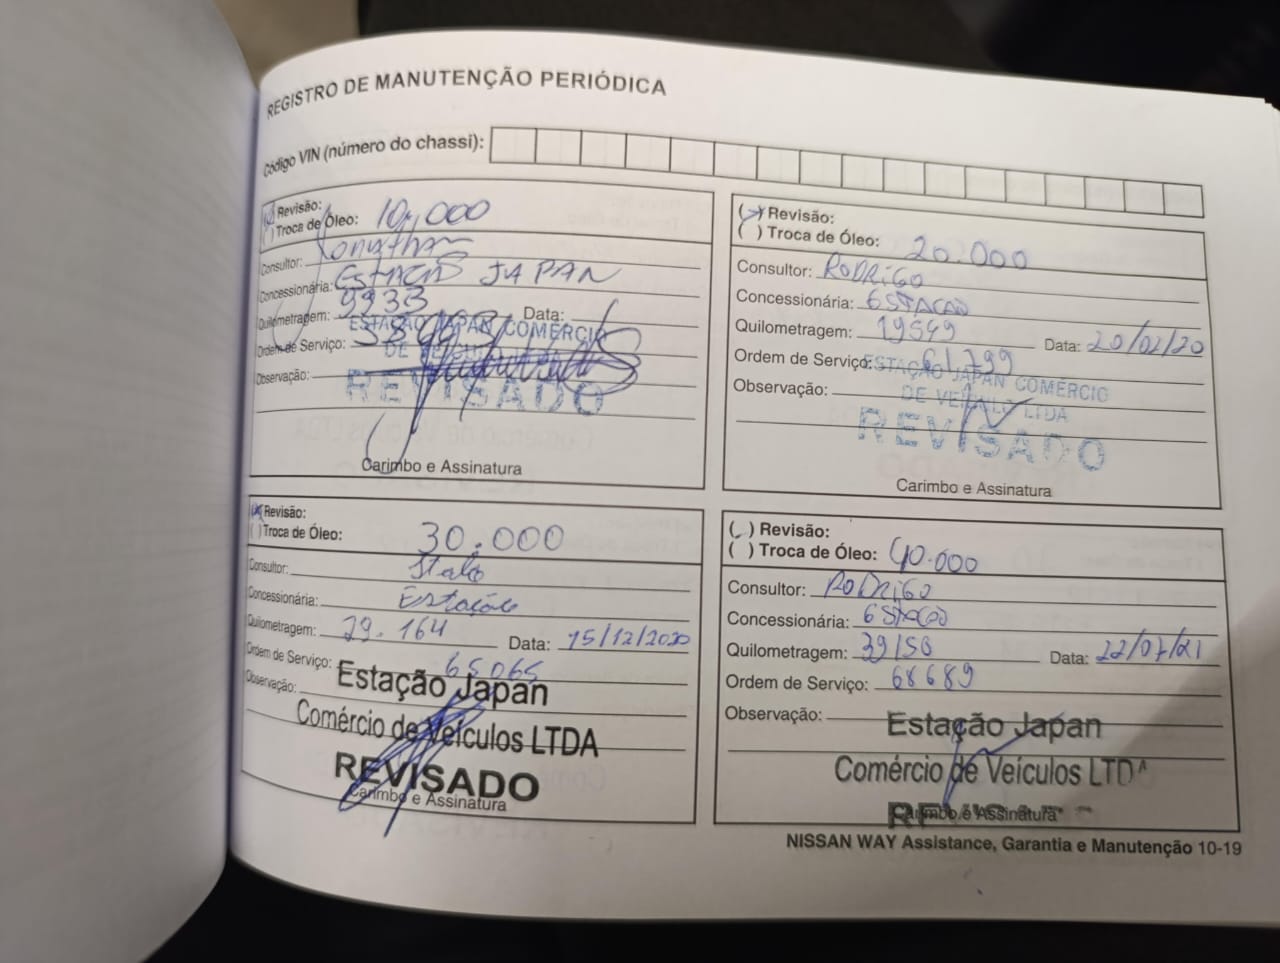 REGISTRO DE MANUTENÇÃO PERIÓDICA
Código VIN (número do chassi):
Revisão:
( ) Troca de Óleo: 10.000
Consultor: Jonathas
Concessionária: ESTAÇÃO JAPAN
Quilometragem: 9933 Data:
Ordem de Serviço:
Observação:
ESTAÇÃO JAPAN COMÉRCIO
DE VEÍCULO LTDA
REVISADO
Carimbo e Assinatura
(x) Revisão:
( ) Troca de Óleo: 20.000
Consultor: RODRIGO
Concessionária: ESTACAO
Quilometragem: 19549 Data: 20/02/20
Ordem de Serviço: 61.799
Observação:
ESTAÇÃO JAPAN COMÉRCIO
DE VEÍCULO LTDA
REVISADO
Carimbo e Assinatura
(x) Revisão:
( ) Troca de Óleo: 30.000
Consultor: Italo
Concessionária: Estação
Quilometragem: 29.164 Data: 15/12/2020
Ordem de Serviço: 65065
Observação:
Estação Japan
Comércio de Veículos LTDA
REVISADO
Carimbo e Assinatura
( ) Revisão:
( ) Troca de Óleo: 40.000
Consultor: RODRIGO
Concessionária: ESTACAO
Quilometragem: 39150 Data: 22/07/21
Ordem de Serviço: 68689
Observação:
Estação Japan
Comércio de Veículos LTDA
Carimbo e Assinatura
NISSAN WAY Assistance, Garantia e Manutenção 10-19